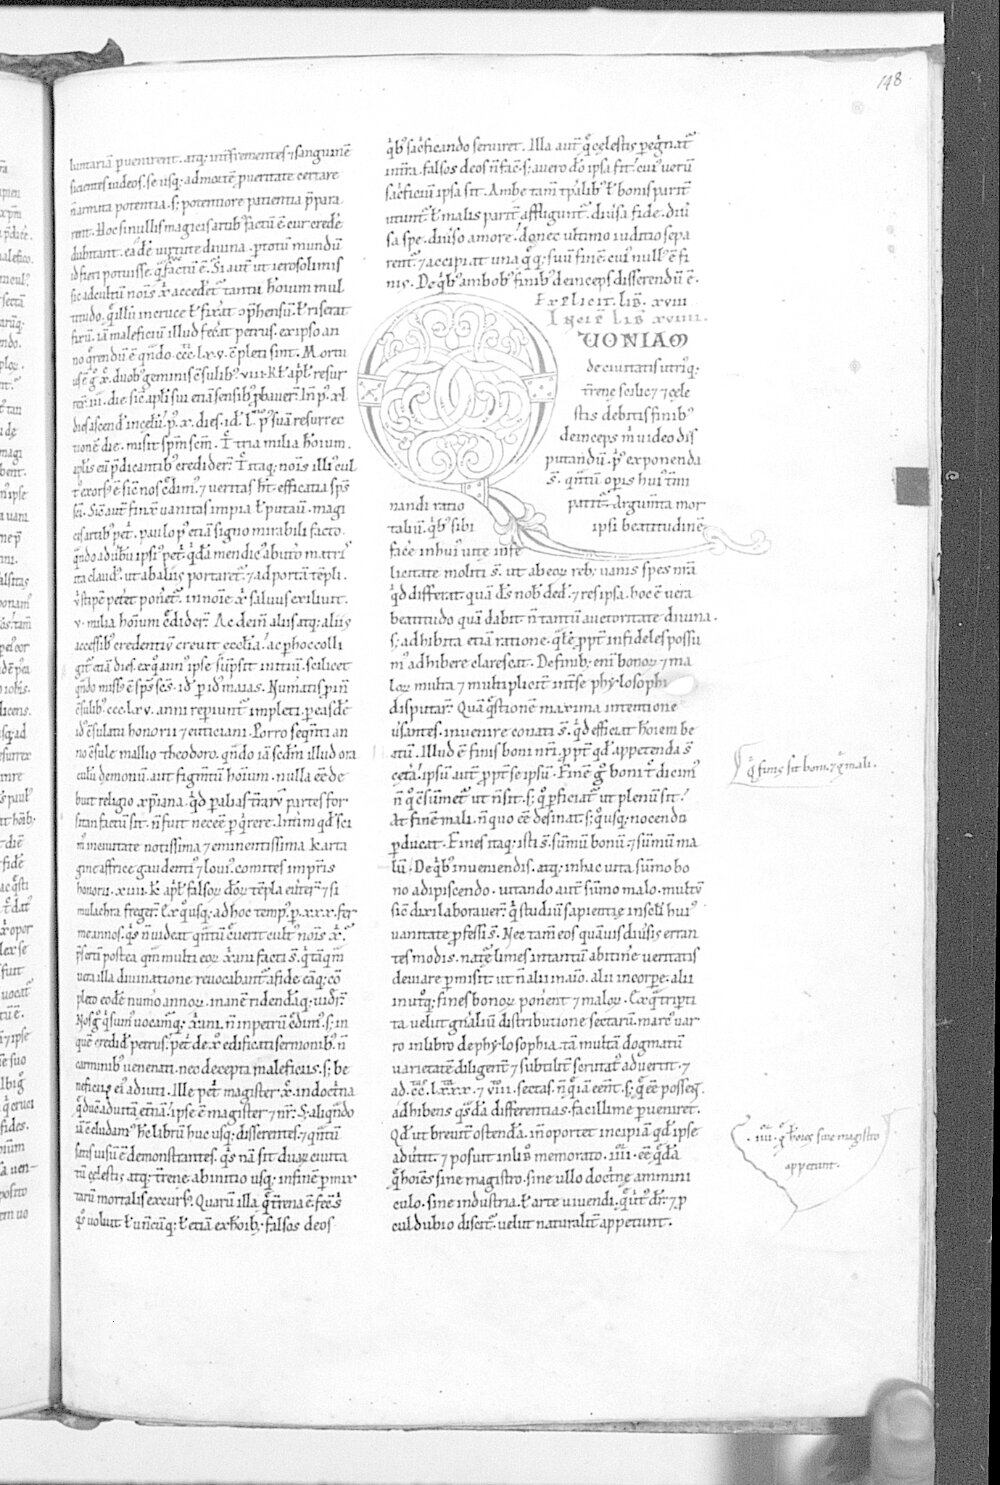 148
luntariā puenirent. atq; infrementes ⁊ sanguinē
sicientes iudeos. se usq; ad mortē p ueritate certare
n̄ armata potentia. s; potentiore patientia p̄para
rent. Hoc si nullis magicis artib; factū ē. cur credē
dubitant. eadē uirtute diuina. p totū mundū
id fieri potuisse. q̄ factū ē. Si aut̄ ut ierosolimis
sic ad cultū nōis x̄ accedet̄ tanta hōium mul
titudo. q̄ illū in cruce ł fixat̄ op̄hensū. ł riserat
fixū. iā maleficiū illud fecat̄ petrus. ex ipso an
no q̄rendū ē q̄ndo ccc.lxv. cpleti sint. Mortu
us ē ḡ x̄. duob; geminis c̄sulib;. viii. kł. apł. resur
rex̄. iii. die. sic̄ apłi sui etiā sensib; pbauer̄. In p̄. xl.
dies ascend̄ in celū. p̄. x. dies. id. ł. p̄ suā resurrec
tionē die. misit sp̄m sc̄m. T̄ tria milia hōium.
apłis eū p̄dicantib; credider̄. T̄ itaq; nōis illi; cul
t; exors; ē. sic̄ nos c̄dim;. ⁊ ueritas ht̄. efficatia sp̄s
sc̄i. Sic̄ aut̄ finx̄ uanitas impia ł putauī. magi
cis artib; pet̄. Paulo p̄ etiā signo mirabili facto.
q̄ndo ad ubū ipsi; pet̄. q̄dā mendic; ab utō matris
ita claud;. ut ab aliis portaret̄. ⁊ ad portā tēpli.
ut stipē petet̄ ponet̄. in nōie x̄. salū exiliuit.
v. milia hōium c̄dider̄. Ac deīn aliis atq; aliis
accessib; credentiū creuit ecclīa. ac p hoc colli
git̄ etiā dies. ex q̄ ann; ipse sūpsit initiū. scilicet
q̄ndo miss; ē sp̄s sc̄s. id̄ p id; maias. Numatis p̄in
c̄sulib; ccc.lxv. anni reperiunt̄ impleti. p easdē
id; c̄sulatu honorii ⁊ euticiani. Porro seq̄nti an
no c̄sule mallio theodoro. q̄ndo iā sc̄dm illud ora
culū demonū. aut figmtū hōium. nulla eē de
buit religio xp̄iana. q̄d p alias t̄rarū partes for
sitan factū sit. n̄ fuit necē pq̄rere. Intim q̄d sci
m; in ciuitate notissima ⁊ eminentissima karta
gine affrice. gaudenti; ⁊ loui; comites imp̄ris
honorii. xiiii. k. apł. falsoꝝ dōꝝ tēpla euter̄. ⁊ si
mulachra freger̄. Ex q̄ usq; ad hoc temp; p. xxx. fer
me annos. q̄s n̄ uideat q̄ntū cuerit cult; nōis x̄.
p̄sertī postea q̄m multi eoꝝ x̄iani facti s̄. q̄ tāq̄m
uera illa diuinatione reuocabant̄ a fide. eāq; cō
pleto eodē numō annoꝝ. inanē ridendāq; uider̄.
Nos ḡ q̄ sum; uocamq; x̄iani. n̄ in petrū c̄dim;. s; in
quē credid̄ petrus. pet̄ de x̄ edificati sermonib;. n̄
carminib; uenenati. nec decepti maleficiis. s; be
neficiis ei; adiuti. Ille pet̄ magister x̄. in doctna
q̄ ducē ad uitā etnā. ipse ē magister ⁊ nr̄. S; aliq̄ndo
iā c̄cludam; hc̄ librū. huc usq; disserentes. ⁊ q̄ntū
satis uisū ē demonstrantes. q̄s nā sit duaꝝ ciuita
tū celestis. atq; t̄rene. ab initio usq; in finē pmix
tarū mortalis excurs;. Quarū illa q̄ t̄rena ē. fec̄s
q̄s uoluit ł undcūq;. ł etiā ex hōib;. falsos deos
q̄b; sac̄ficando seruiret. Illa aut̄ q̄ celestis pegnat̄
in t̄ra. falsos deos n̄ fac̄. s; a uero dō ipsa fit. cui; uerū
sac̄ficiū ipsa sit. Ambe tam̄ tp̄alib; ł bonis parit̄
utunt̄. ł malis parit̄ affligunt̄. diūsa fide. diū
sa spe. diūso amore. donec ultimo iuditio sepa
rent̄. ⁊ accipiat una q̄q; suū finē. cui; null; ē fi
nis. De q̄b; ambob; finib; deinceps disserendū ē.
Explicit. lib̄. xviii
Incip̄ lib̄ xviiii.
QUONIAM
de ciuitatis utriq;
t̄rene scilic; ⁊ cele
stis debitis finib;
deinceps m̄ uideo dis
putandū. p̄; exponenda
s̄. q̄ntū opis hui; t̄mi
nandi ratio patit̄. Argumta mor
taliū. q̄b; sibi ipsi beatitudinē
facē in hui; uite infe
licitate moliti s̄. ut ab eoꝝ reb; uanis spes nr̄a
q̄d differat quā d̄s nob̄ ded̄. ⁊ res ipsa. hoc ē uera
beatitudo quā dabit n̄ tantū auctoritate diuina.
s; adhibita etiā ratione. q̄le p̄pt̄ infideles possu
m; adhibere clarescat. De finib; eni bonoꝝ ⁊ ma
loꝝ multa ⁊ multiplicit̄ int̄ se phylosophi
disputar̄. Quā q̄stionē maxima intentione
ūsantes. inuenire conati s̄. q̄d efficeat hōiem be
atū. Illud ē finis boni nr̄i. p̄pt̄ q̄d appetenda s̄
cetā. ipsū aut̄ p̄pt̄ se ipsū. Finē ḡ boni t̄ dicim;
n̄ q̄ c̄sumet̄ ut n̄ sit. s; q̄ pficiat̄ ut plenū sit.
At finē mali. n̄ quo eē desinat. s; q̄ usq; nocendo
pducat. Fines itaq; isti s̄. sūmū bonū. ⁊ sūmū ma
lū. De q̄b; inueniendis. atq; in hac uita sūmo bo
no adipiscendo. uitando aut̄ sūmo malo. multū
sic̄ dixi laborauer̄. q̄ studiū sapientie in sc̄li hui;
uanitate pfessi s̄. Nec tam̄ eos quāuis diūsis erran
tes modis. natē limes in tantū ab itinē ueritatis
deuiare pmisit. ut n̄ alii in aīo. alii in corpe. alii
in utq; fines bonoꝝ ponent ⁊ maloꝝ. Ex q̄ tripti
ta uelut gn̄aliū distributione sectarū. marc; uar
ro in libro de phylosophia. tā multā dogmatū
uarietatē diligent̄ ⁊ subtilit̄ scrutat; aduertit. ⁊
ad. cc. lxxx. ⁊ viii. sectas. n̄ q̄ iā eent̄. s; q̄ eē possent.
adhibens q̄sdā differentias. facillime pueniret.
Qd̄ ut breuit̄ ostendā. in̄ oportet incipiā q̄d ipse
adūtit. ⁊ posuit in lib̄ memorato. iiii. eē q̄dā
q̄ hoīes sine magistro. sine ullo doctne ammini
culo. sine industria. ł arte uiuendi. q̄ uirt; dr̄. ⁊ p
cul dubio discit̄. uelut naturalit̄ appetunt.
q̄ finis sit boni. ⁊ q̄ mali.
. iiii. q̄ hoīes sine magistro
appetunt.